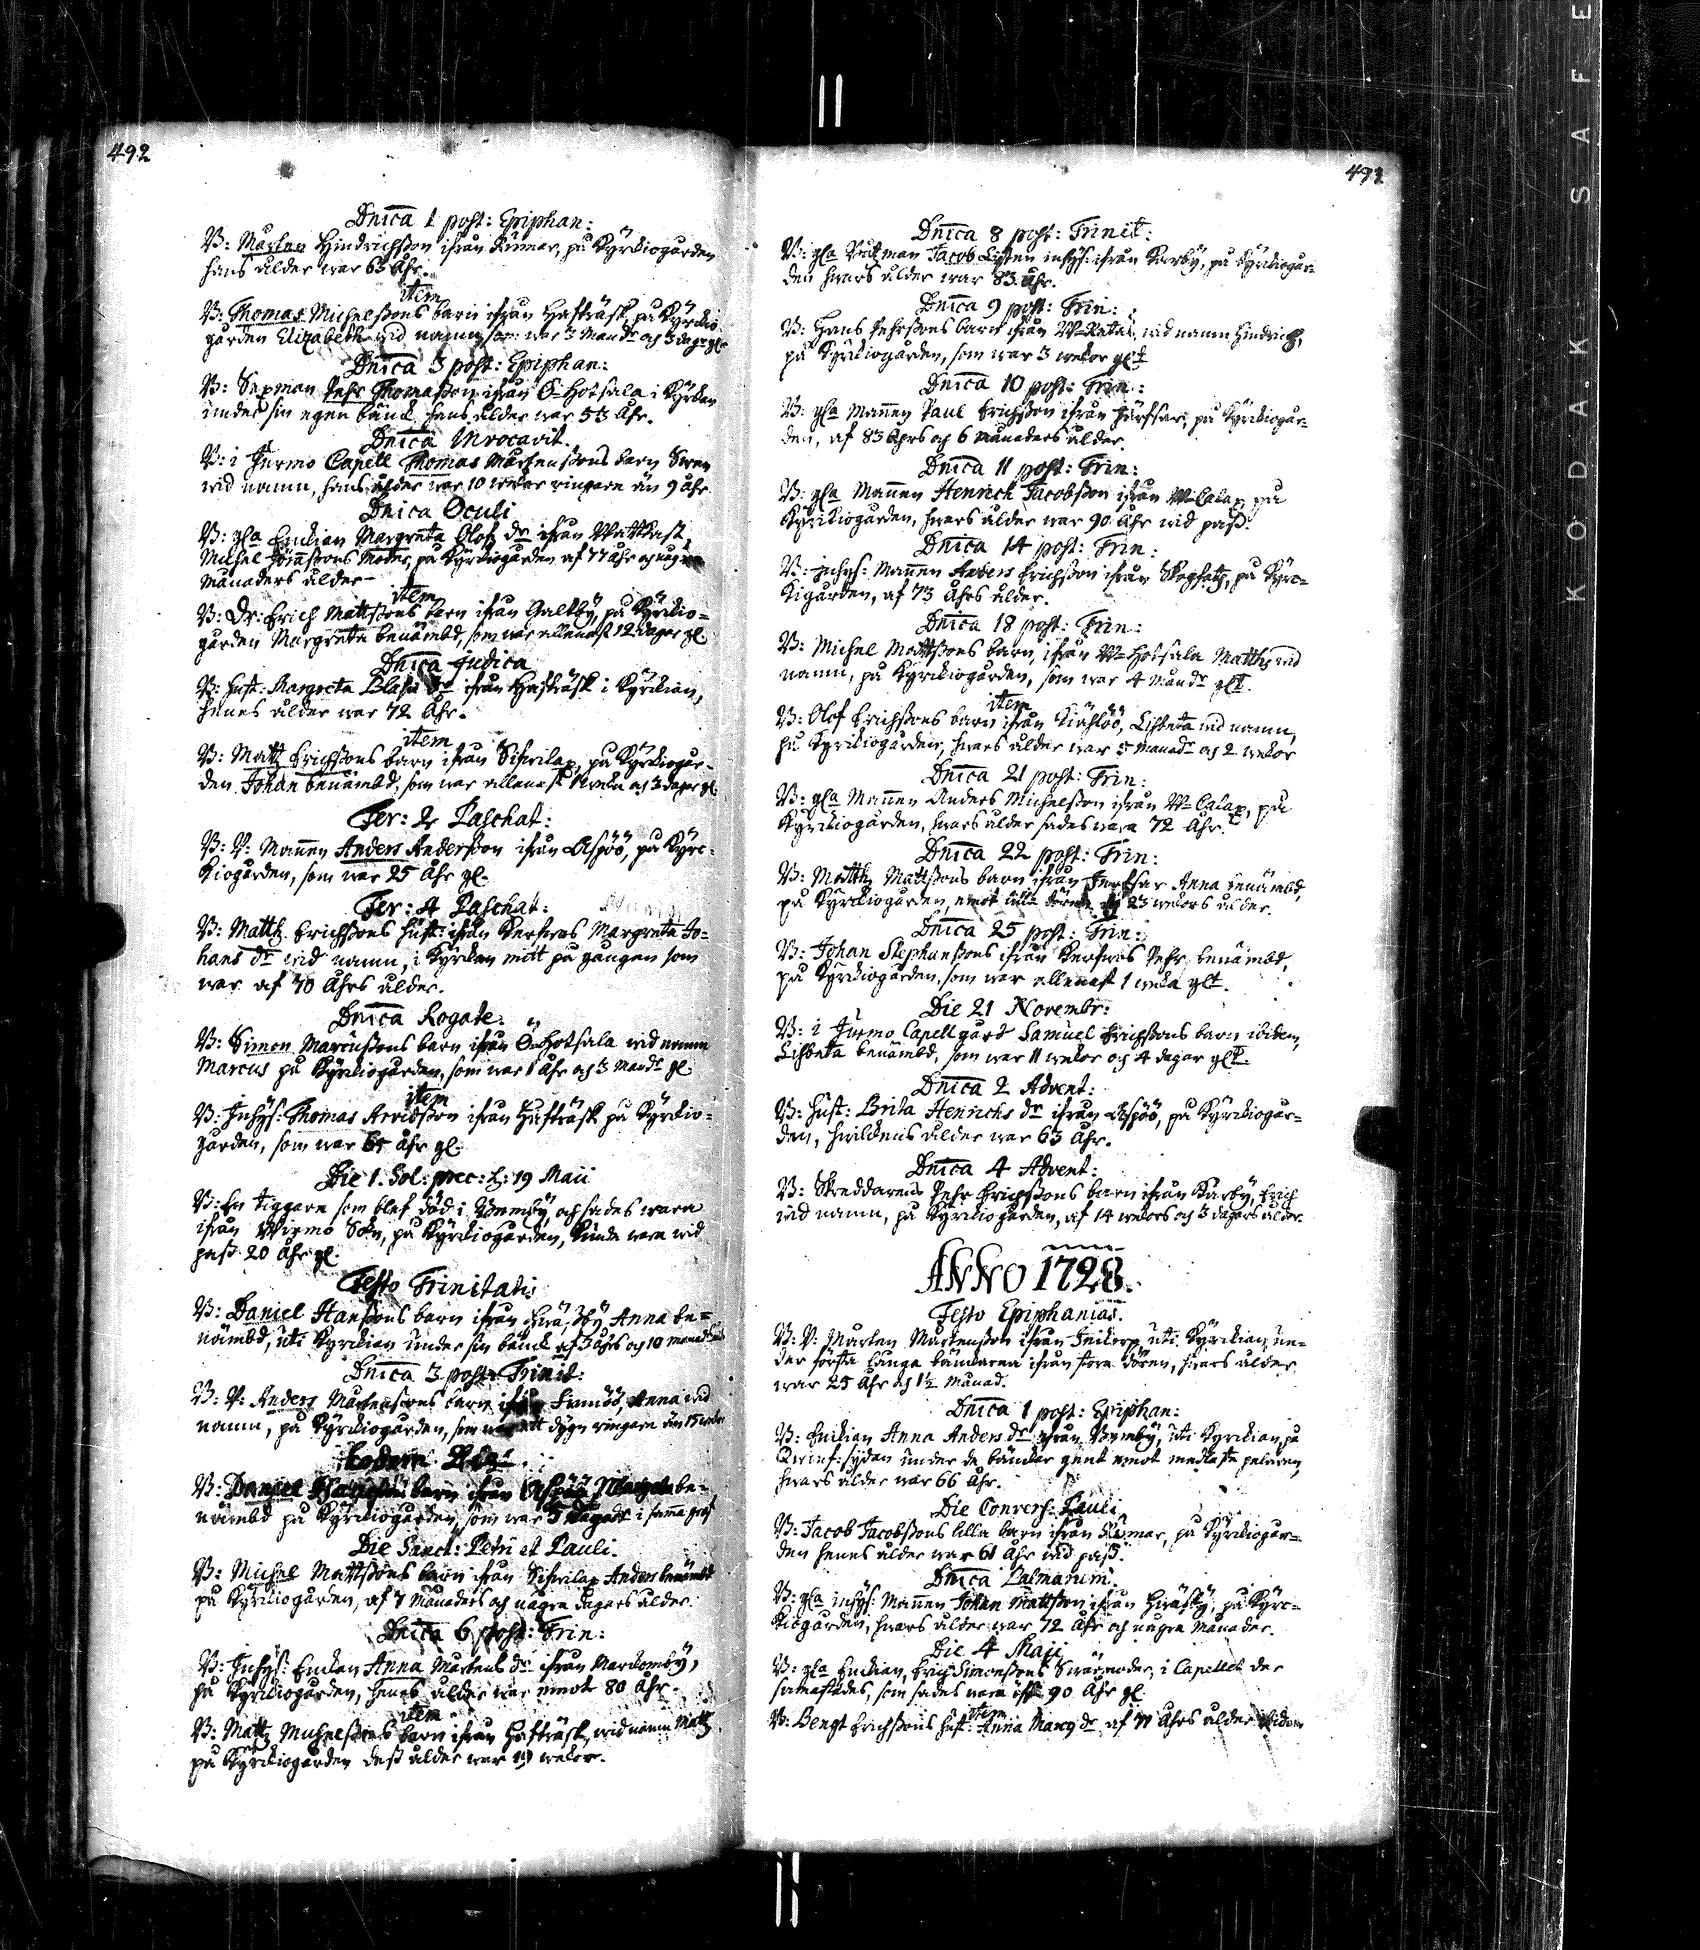 492
Dnica 1 post: Epiphan:
B: Marten Hindrichsson ifrån Rumar, på Kyrkiogården
hans ålder war 63 åhr.
item
B: Thomas Michelssons barn ifrån Hafträsk på Kyrkio-
gården Elizabeth wid namn, som war 3 Måndr och 3 dagr gl.
Dnica 3 post: Epiphan:
B: Sexman Pehr Thomasson ifrån Ö-Hotsala i Kyrkan
under sin egen bänck hans ålder war 53 åhr.
Dnica Invocavit.
B: i Jurmo Capell Thomas Mårtenssons barn Swen
wid namn, hans ålder war 10 wekor ringare än 9 åhr
Dnica Oculi
B: gla Enkian Margreta Olofs dr ifrån Wattkast,
Michel Jöranssons Moder, på Kyrkiogården af 77 åhr och någre
Månaders ålder
item
B: Dr: Erich Mattssons barn ifrån Galtby, på Kyrkio-
gården Margreta benämbd, som war allenast 12 dagar gl.
Dnica Judica
B: hust: Margreta Blasii dr ifrån Hafträsk i Kyrkian,
hennes ålder war 72 åhr.
item
B: Matz Erichssons barn ifrån Sifwilax, på Kyrkiogår-
den Johan benämbd, som war allenast 1 weka och 3 dagar gl
Fer: 2 Paschat:
B: V: Mannen Anders Andersson ifrån Aspöö, på Kyrc-
kiogården, som war 25 åhr gl.
Fer: 4 Paschat:
B: Mattz Erichssons hust: ifrån Kerkras Margreta Jo-
hans dr wid namn, i Kyrkan mitt på gången som
war af 70 åhrs ålder.
Dnica Rogate.
B: Simon Marcussons barn ifrån Ö-Hotsala wid namn
Marcus på Kyrkiogården, som war 1 åhr och 3 Mandr gl.
item
B: Inhys: Thomas Arvidsson ifrån Hafträsk på Kyrkio-
gården, som war 65 åhr gl.
Die 1. Rol: prec: d: 19 Maii
B: En tiggare som blef död i Wemby, och sades wara
ifrån Wirmo Sokn, på Kyrkiogården, kunde ware wid
pass 20 åhr gl.
Festo Trinitatis
B: Daniel Hanssons barn ifrån Anna be-
nämbd, uti Kyrkian under sin bänck af 3 åhrs och 10 månad
Dnica 3 post: Trinit:
B: V: Anders Mårtenssons barn ifrån Anna wid
namn, på Kyrkiogården, som war ett dygn ringare än 15 wekor
Eodem Die
B: Daniel barn ifrån Aspöö be-
nämbd på Kyrkiogården, som war 5 dagar i samma graf
Die Sanct: Petri et Pauli.
B: Michel Mattssons barn ifrån Sifwilax Anders benämbd
på Kyrkiogården, af 7 Månaders och någre dagars ålder.
Dnica 6 post: Trin:
B: Inhys: Enkan Anna Mårtens dr ifrån Markomby,
på Kyrkiogården, hennes ålder war emot 80 åhr.
item
B: Matz Michelssons barn ifrån Hafträsk, wid namn Matz
på Kyrkiogården dess ålder war 19 wekor.
493
Dnica 8 post: Trinit:
B: gla Jacob inhys: ifrån Karby, på Kyrkiogår-
den hwars ålder war 83 åhr.
Dnica 9 post: Trin:
B: Hans Pehrssons barn ifrån W-Rätas, wid namn Hindrich,
på Kyrkiogården, som war 3 wekor glt
Dnica 10 post: Trin:
B: gla Mannen Paul Erichsson ifrån på Kyrkiogår-
den, af 83 åhrs och 6 månaders ålder
Dnica 11 post: Trin:
B: gla Mannen Henrich Jacobsson ifrån W-Lalax på
Kyrkiogården, hwars ålder war 90 åhr wid pass.
Dnica 14 post: Trin:
B: Inhys: Mannen Anders Erichsson ifrån på Kyrc-
kigården, af 73 åhrs ålder.
Dnica 18 post: Trin:
B: Michel Mattssons barn, ifrån W-Hotsala Matths wid
namn, på Kyrkiogården, som war 4 mandr glt.
item
B: Olof Erichssons barn ifrån Lisbeta wid namn,
på Kyrkiogården, hwars ålder war 5 Månadr och 2 wekor
Dnica 21 post: Trin:
B: gla Mannen Anders Michelsson ifrån W-Lalax, på
Kyrkiogården, hwars ålder sades wara 72 åhr.
Dnica 22 post: Trin:
B: Matthz Mattssons barn ifrån Anna benämbd,
på Kyrkiogården, emot lilla dören af 23 wekors ålder.
Dnica 25 post: Trin:
B: Johan Stephanssons ifrån Kerkras Pehr benämbd,
på Kyrkiogården, som war allenast 1 weka glt.
Die 21 Novembr:
B: i Jurmo Capellgård Samuel Erichssons barn ibidem,
Lisbeta benämbd, som war 11 wekor och 4 dagar glt.
Dnica 2 Advent:
B: Hust: Brita Henrichs dr ifrån Aspöö, på Kyrkiogår-
den, hwilckens ålder war 63 åhr.
Dnica 4 Advent:
B: Skreddarens Pehr Erichssons barn ifrån Karby, Erich
wid namn, på Kyrkiogården, af 14 wekors och 3 dagars ålder.
ANNO 1728.
Festo Epiphanias.
B: V: Marten Mårtensson ifrån uti Kyrkian, un-
der första långa bänckarna ifrån stora dören, hwars ålder
war 25 åhr och 1½ månad.
Dnica 1 post: Epiphan:
B: Enkian Anna Anders dr ifrån Wemby, uti Kyrkian på
Qwinf: sydan under de bänckar gent emot medlaste pelaren,
hwars ålder war 66 åhr.
Die Convers: Pauli
B: Jacob Jacobssons lilla barn ifrån Rumar, på Kyrkiogår-
den hennes ålder war 6 åhr wid pass.
Dnica Palmarum.
B: gla inhys: Mannen Johan Mattsson ifrån på Kyrc-
kiogården, hwars ålder war 72 åhr och någre Månader.
Die 4 Maii
B: gla Enkian, Erich Simonssons Swärmoder, i Capellet der
sammastädes, som sades wara öfr 90 åhr gl
item
B: Bengt Erichssons hust: Anna Marcs dr af 77 åhrs ålder ibidem